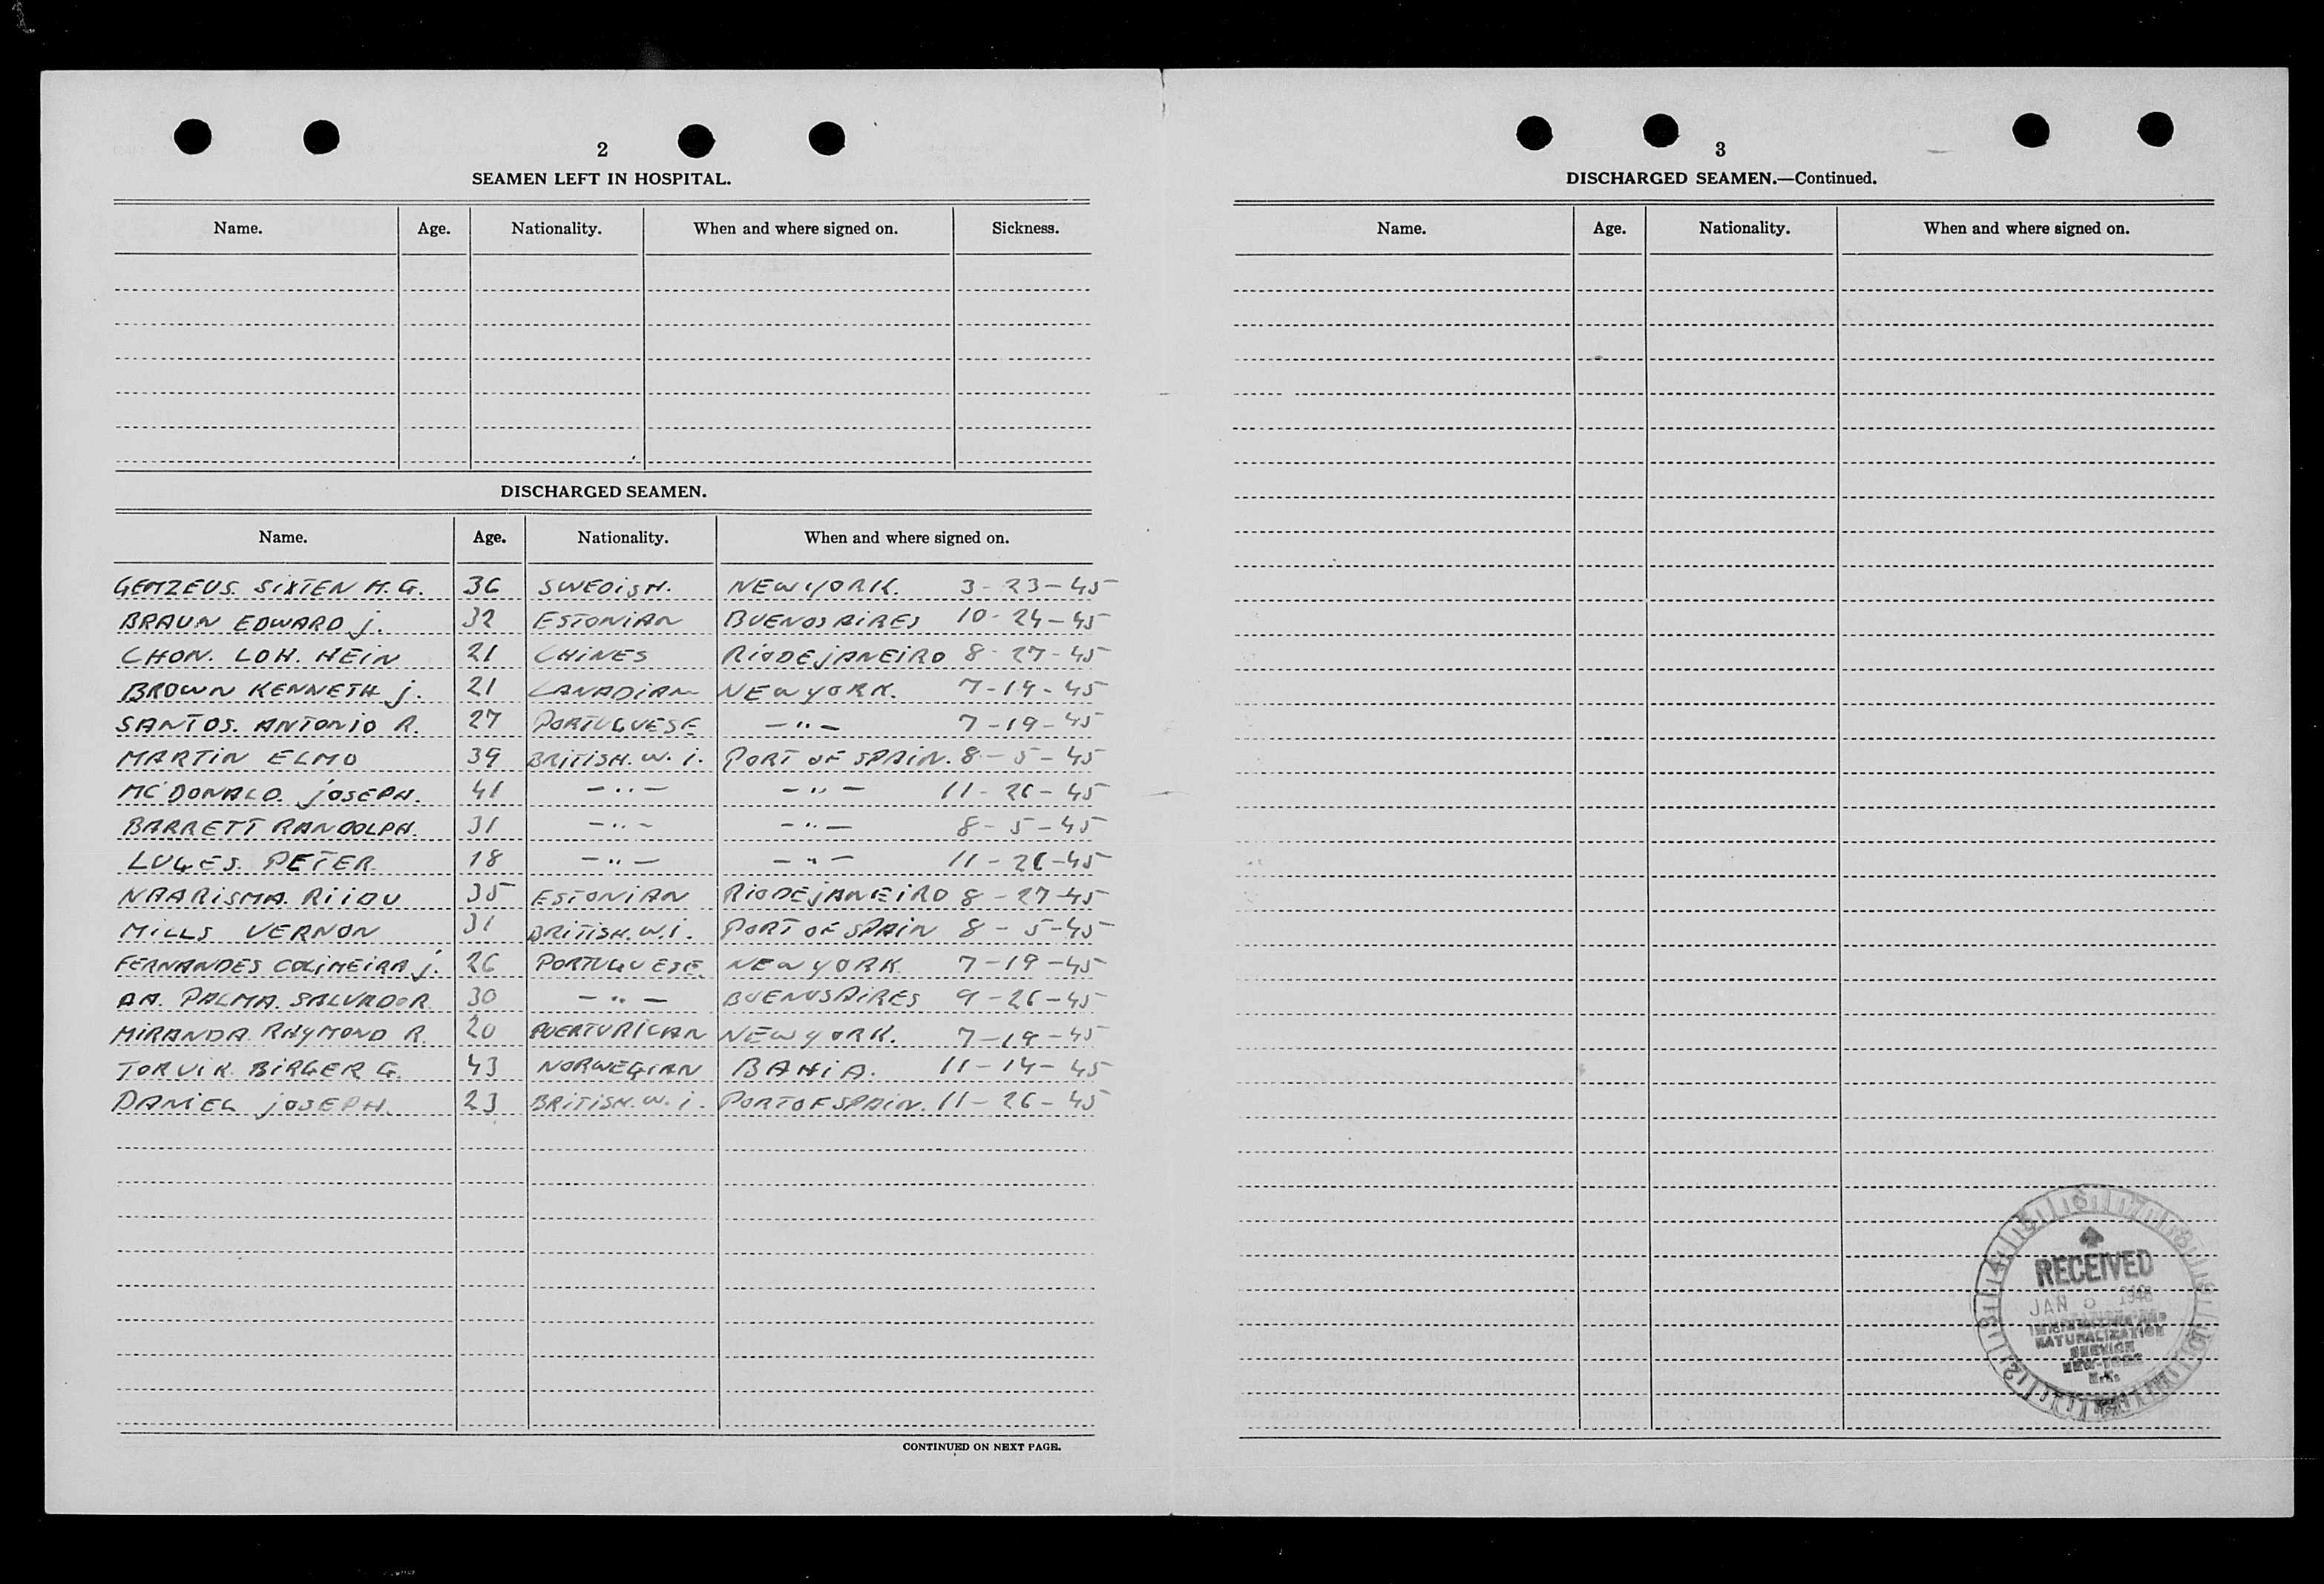 2
SEAMEN LEFT IN HOSPITAL.
Name. Age. Nationality. When and where signed on. Sickness.
DISCHARGED SEAMEN.
Name. Age. Nationality. When and where signed on.
GEMZEUS. SIXTEN H. G. 36 SWEDISH. NEW YORK. 3-23-45
BRAUN EDWARD J. 32 ESTONIAN BUENOS AIRES 10-24-45
CHON. LOH. HEIN 21 CHINES RIO DE JANEIRO 8-27-45
BROWN KENNETH J. 21 CANADIAN NEW YORK. 7-19-45
SANTOS. ANTONIO R. 27 PORTUGUESE -"- 7-19-45
MARTIN ELMO 39 BRITISH. W. I. PORT OF SPAIN. 8-5-45
MC'DONALD. JOSEPH. 41 -"- -"- 11-26-45
BARRETT RANDOLPH. 31 -"- -"- 8-5-45
LUGES. PETER 18 -"- -"- 11-26-45
NAARISMA. RIIDU 35 ESTONIAN RIO DE JANEIRO 8-27-45
MILLS VERNON 31 BRITISH. W. I. PORT OF SPAIN 8-5-45
FERNANDES J. 26 PORTUGUESE. NEW YORK 7-19-45
PALMA. SALVADOR. 30 -"- BUENOS AIRES 9-26-45
MIRANDA RAYMOND R. 20 PUERTURICAN NEW YORK. 7-19-45
TORVIK. BIRGER G. 43 NORWEGIAN BAHIA. 11-14-45
DANIEL JOSEPH. 23 BRITISH. W. I. PORT OF SPAIN. 11-26-45
CONTINUED ON NEXT PAGE.
3
DISCHARGED SEAMEN.—Continued.
Name. Age. Nationality. When and where signed on.
RECEIVED
JAN
IMMIGRATION AND
NATURALIZATION
SERVICE
NEW YORK
N.Y.